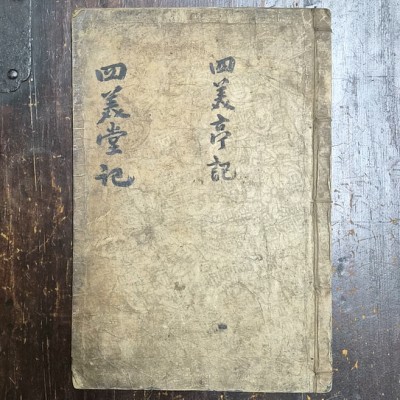 四美亭記
四美堂記